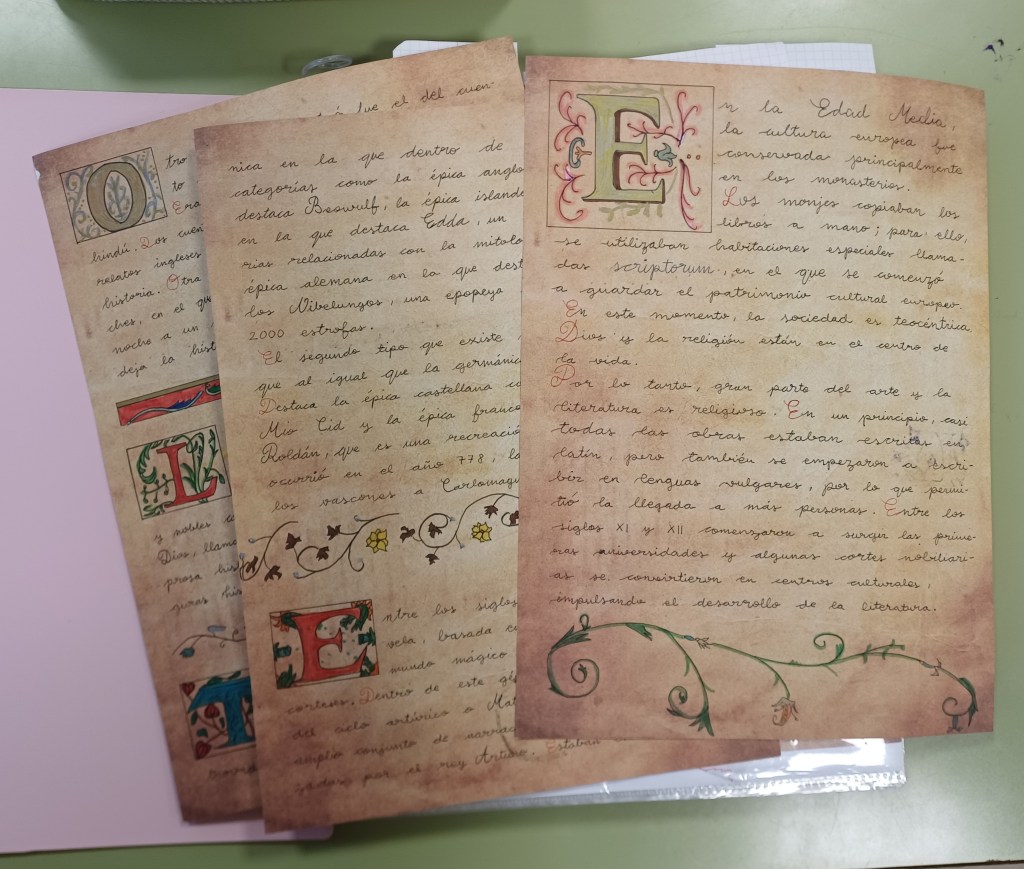 En la Edad Media,
la cultura europea fue
conservada principalmente
en los monasterios.
Los monjes copiaban los
libros a mano; para, ello,
se utilizaban habitaciones especiales llama-
das scriptorum, en el que se comenzó
a guardar el patrimonio cultural europeo.
En este momento, la sociedad es teocéntrica,
Dios y la religión están en el centro de
la vida.
Por lo tanto, gran parte del arte y la
literatura es religioso. En un principio, casi
todas las obras estaban escritas en
latín, pero también se empezaron a escri-
bir en lenguas vulgares, por lo que permi-
tió la llegada a más personas. Entre los
siglos XI y XII comenzaron a surgir las prime-
ras universidades y algunas cortes nobiliari-
as se convirtieron en centros culturales,
impulsando el desarrollo de la literatura.
nica en la que dentro de
categorías como la épica anglo
destaca Beowulf; la épica island
en la que destaca Edda, un
rias relacionadas con la mitolo
épica alemana en la que dest
los Nibelungos, una epopeya
2000 estrofas.
El segundo tipo que existe
que al igual que la germánic
Destaca la épica castellana co
Mio Cid y la épica franc
Roldán, que es una recreació
ocurrió en el año 778; lo
los vascones a Carlomagn
Entre los siglos
vela, basada e
mundo mágico
corteses. Dentro de este
del ciclo artúrico o Mat
amplio conjunto de narrac
zadas por el rey Arturo. Estaban
fue el del cuen-
Otro
to
Era
hindú. Los cuen
relatos ingleses
historia. Otra
ches, en el qu
noche a un
deja la hist
L
y nobles co
Dios, llam
prosa his
guras his
T